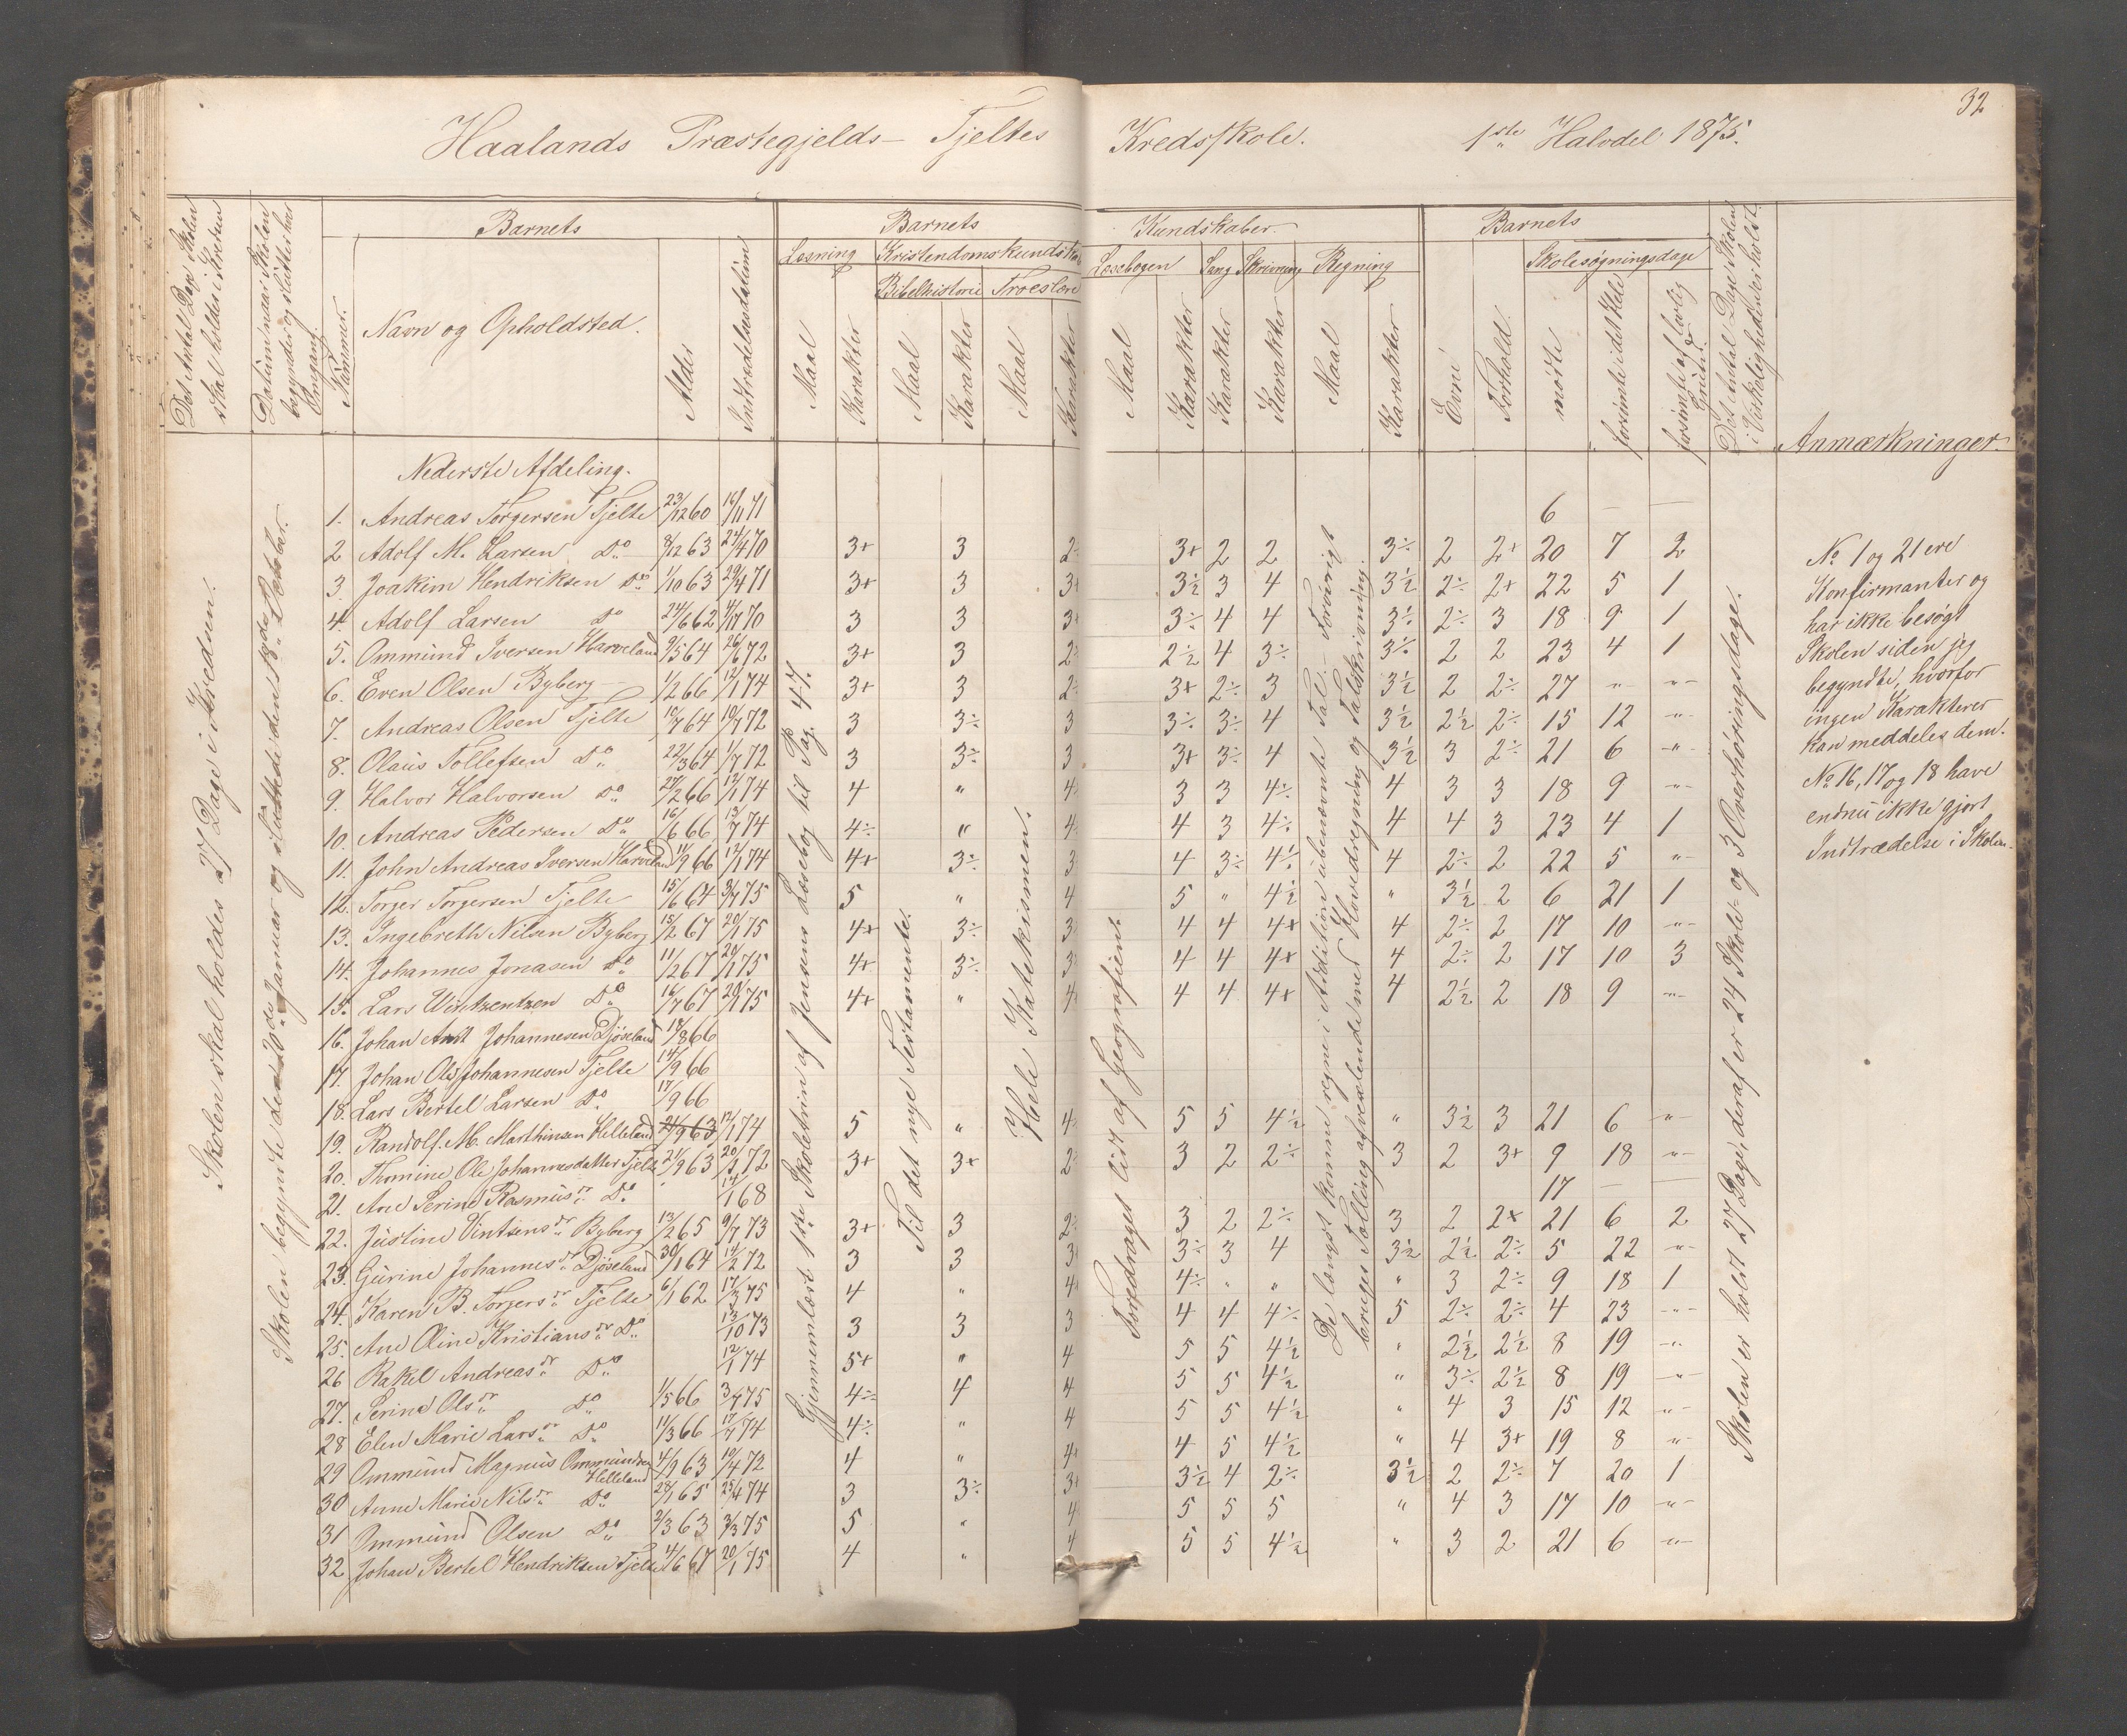 32
Haalands Præstegjelds- Tjeltes Kredsskole. 1ste Halvdel 1875.
Det Antal Dage Skolen skal holdes i Kredsen
Datum naar Skolen begynder og slutter hver Omgang.
Nummer.
Barnets
Navn og Opholdsted.
Alder
Indtrædelsesdatum
Barnets Kundskaber.
Læsning
Kristendomskundskab
Bibelhistorie
Troeslære
Læsebogen
Sang
Skrivning
Regning
Maal
Karakter
Maal
Karakter
Maal
Karakter
Maal
Karakter
Karakter
Karakter
Maal
Karakter
Barnets
Evne
Forhold.
Skolesøgningsdage
mødte
forsømte i det Hele
forsømte af lovlig Grund.
Det Antal Dage Skolen i Virkeligheden er holdt.
Anmærkninger.
Skolen skal holdes 27 Dage i Kredsen.
Skolen begynte den 20de Januar og sluttede den 18de Oktober.
Gjennemlæst 1ste Skoletrin af Jensens Læsebog til Pag. 47.
Til det nye Testamente.
Hele Katekismen.
Foredraget lidt af Geografien.
De længst komne regne i Addition ubenævnte Tal. Forøvrigt
bruges Tælling afvexlende med Hovedregning og Talskrivning.
Skolen er holdt 27 Dage, deraf er 24 Skole- og 3 Overhøringsdage.
Nederste Afdeling.
1. Andreas Torgersen Tjelte 23/12 60 16/11 71 6 — —
2 Adolf M. Larsen Do 8/12 63 24/4 70 3+ 3 2÷ 3+ 2 2 3÷ 2 2+ 20 7 2
3. Joakim Hendriksen Do 1/10 63 29/4 71 3+ 3 3+ 3½ 3 4 3½ 2÷ 2+ 22 5 1
4. Adolf Larsen Do 24/6 62 4/7 70 3 3 3+ 3÷ 4 4 3÷ 2÷ 3 18 9 1
5. Ommund Iversen Harveland 9/5 64 26/6 72 3+ 3 2÷ 2½ 4 3÷ 3÷ 2 2 23 4 1
6. Even Olsen Byberg 1/2 66 12/1 74 3+ 3 2÷ 3+ 2÷ 3 3½ 2 2÷ 27 „ „
7. Andreas Olsen Tjelte 10/7 64 10/7 72 3 3÷ 3 3÷ 3÷ 4 3½ 2½ 2÷ 15 12 „
8. Olaus Tollefsen Do 22/3 64 1/7 72 3 3÷ 3 3+ 3÷ 4 3½ 3 2÷ 21 6 „
9. Halvor Halvorsen Do 27/2 66 12/1 74 4 „ 4÷ 3 3 4÷ 4 3 3 18 9 „
10. Andreas Pedersen Do 16/6 66 13/7 74 4÷ „ 4÷ 4 3 4÷ 4 4 3 23 4 1
11. John Andreas Iversen Harveland 11/9 66 12/1 74 4+ 3÷ 3 4 3÷ 4½ 4 2÷ 2 22 5 „
12. Torger Torgersen Tjelte 15/6 64 3/7 75 5 „ 4 5 „ 4½ „ 3½ 2 6 21 1
13. Ingebreth Nilsen Byberg 15/2 67 20/1 75 4+ 3÷ 3÷ 4 4 4+ 4 2÷ 2 17 10 „
14. Johannes Jonasen Do 11/2 67 20/1 75 4+ 3÷ 3÷ 4 4 4+ 4 2÷ 2 17 10 3
15. Lars Vintzentzen Do 16/7 67 20/1 75 4+ „ 4 4 4 4+ 4 2½ 2 18 9 „
16. Johan Arnt Johannesen Djøseland 18/8 66
17. Johan Ole Johannesen Tjelte 14/9 66
18. Lars Bertel Larsen Do 17/9 66
19. Randolf. M. Marthinsen Helleland 21/9 63 12/1 74 5 „ 4÷ 5 5 4½ „ 3½ 3 21 6 „
20. Thomine Ole Johannesdatter Tjelte 21/9 63 20/3 72 3+ 3+ 2÷ 3 2 2÷ 3 2 3+ 9 18 „
21. Ane Serine Rasmusdr Do 14/1 68 17 — —
22. Justine Vintsensdr Byberg 13/2 65 9/7 73 3+ 3 2÷ 3 2 2÷ 3 2 2+ 21 6 2
23. Gurine Johannesdr Djøseland 30/1 64 14/2 72 3 3 3 3÷ 3 4 3½ 2½ 2÷ 5 22 „
24. Karen B. Torgersdr Tjelte 6/1 62 17/3 75 4 „ 4 4÷ „ „ „ 3 2÷ 9 18 1
25. Ane Oline Kristiansdr Do 13/10 73 3 3 3 4 4 4÷ 5 2÷ 2÷ 4 23 „
26 Rakel Andreasdr Do 12/1 74 5+ „ 4 5 5 4½ „ 2½ 2½ 8 19 „
27. Serine Olsdr Do 1/5 66 3/7 75 4÷ 4 4 5 5 4½ „ 3÷ 2½ 8 19 „
28 Elen Marie Larsdr Do 11/3 66 17/7 74 4÷ „ 4 5 5 4½ „ 4 3 15 12 „
29 Ommund Magnus Ommundsen Helleland 4/9 63 10/4 72 4 „ 4+ 4 5 4½ „ 4 3+ 19 8 „
30 Anne Marie Nilsdr Do 28/1 65 25/4 74 3 3÷ 3+ 3½ 4 2÷ 3½ 2 2÷ 7 20 1
31 Ommund Olsen Do 2/3 63 3/3 75 5 „ 4 5 5 5 „ 4 3 17 10 „
32 Johan Bertel Hendriksen Tjelte 4/6 67 20/1 75 4 „ 4 5 5 4½ „ 3 2 21 6 „
No 1 og 21 ere
Konfirmanter og
har ikke besøgt
Skolen siden jeg
begyndte, hvorfor
ingen Karakterer
kan meddeles dem.
No 16, 17 og 18 have
endnu ikke gjort
Indtrædelse i Skolen.